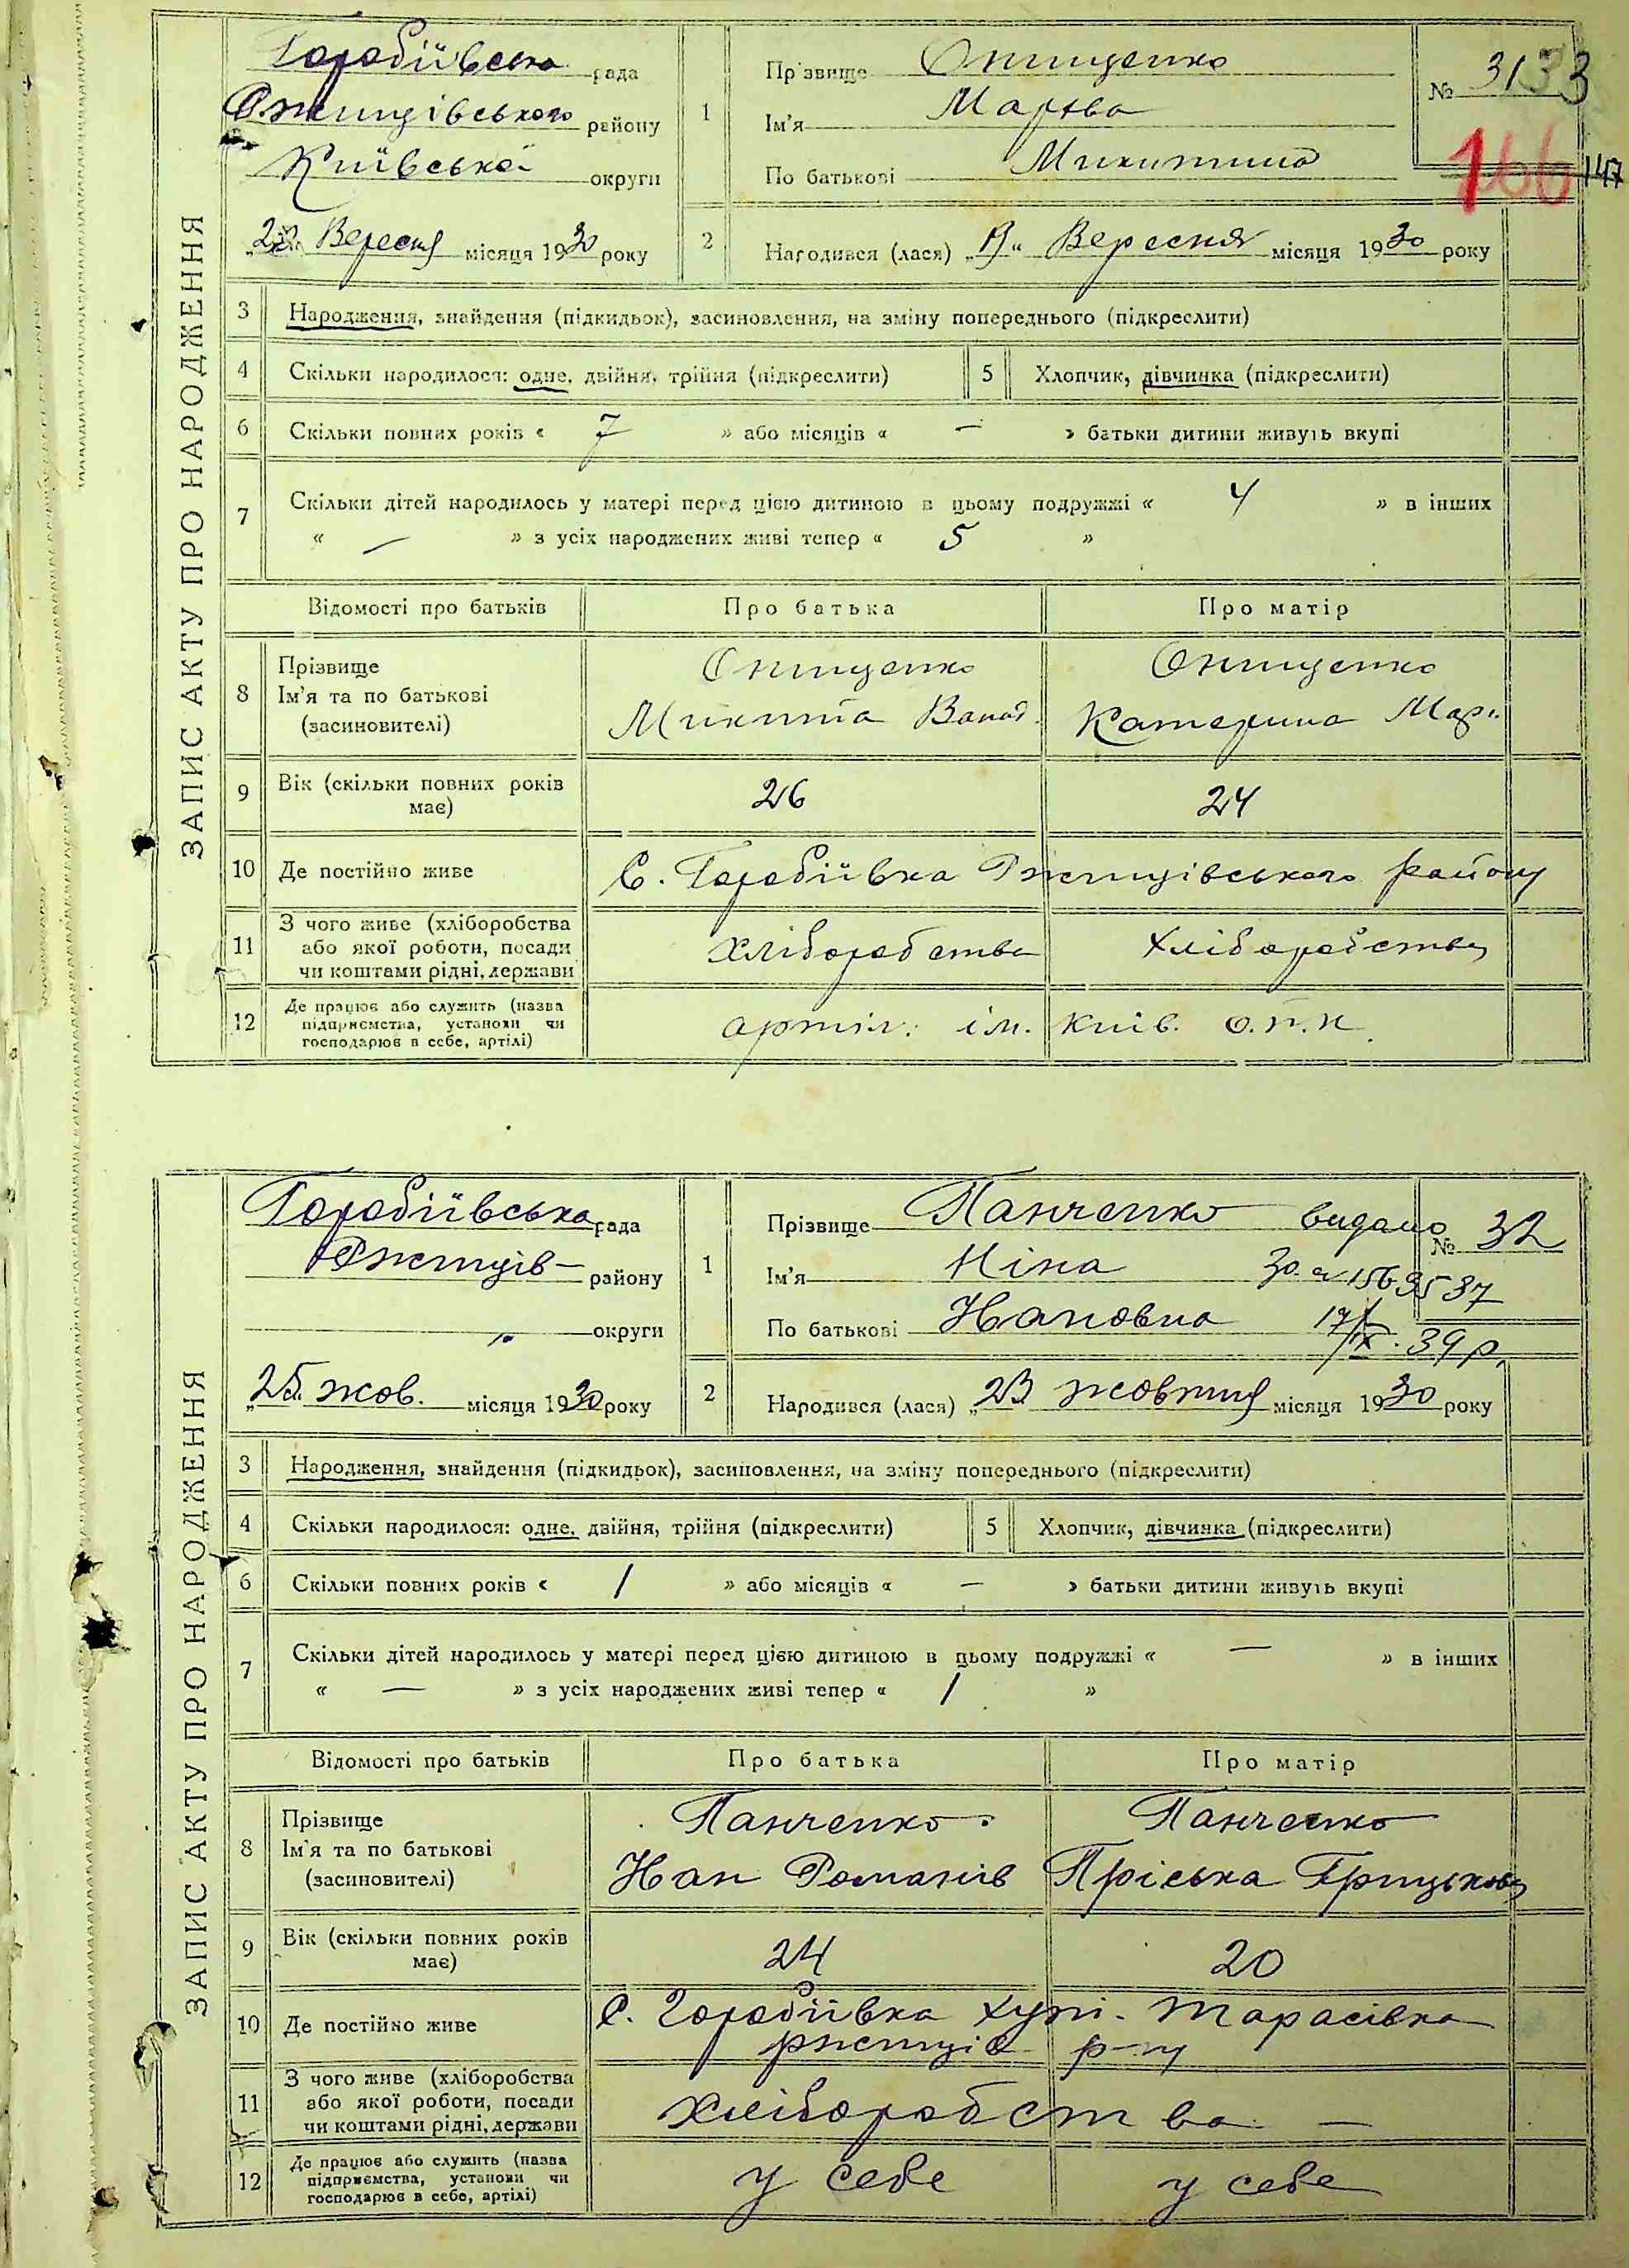 ЗАПИС АКТУ ПРО НАРОДЖЕННЯ
Горобіївська рада
Ржищівського району
Київської округи
Вересня місяця 1930 року
1
Прізвище Онищенко
Ім'я Марта
По батькові Микитина
№ 31 33
166 147
2 Народився (лася) „19“ Вересня місяця 1930 року
3 Народження, знайдення (підкидьок), засиновлення, на зміну попереднього (підкреслити)
4 Скільки народилося: одне, двійня, трійня (підкреслити)
5 Хлопчик, дівчинка (підкреслити)
6 Скільки повних років « 7 » або місяців « — » батьки дитини живуть вкупі
7 Скільки дітей народилось у матері перед цією дитиною в цьому подружжі « 4 » в інших
« — » з усіх народжених живі тепер « 5 »
Відомості про батьків Про батька Про матір
8 Прізвище Онищенко Онищенко
Ім'я та по батькові Микита Катерина
(засиновителі)
9 Вік (скільки повних років 26 24
має)
10 Де постійно живе С. Горобіївка Ржищівського району
11 З чого живе (хліборобства Хліборобства Хліборобства
або якої роботи, посади
чи коштами рідні, держави
12 Де працює або служить (назва артіл. ім. Київ.
підприємства, установи чи
господарює в себе, артілі)
ЗАПИС АКТУ ПРО НАРОДЖЕННЯ
Горобіївська рада
Ржищів– району
„ округи
„25. жов. місяця 1930 року
1
Прізвище Панченко видано № 32
Ім'я Ніна
По батькові Нановна
17/IX. 39 р.
2 Народився (лася) „23 жовтня місяця 1930 року
3 Народження, знайдення (підкидьок), засиновлення, на зміну попереднього (підкреслити)
4 Скільки народилося: одне, двійня, трійня (підкреслити)
5 Хлопчик, дівчинка (підкреслити)
6 Скільки повних років « 1 » або місяців « — » батьки дитини живуть вкупі
7 Скільки дітей народилось у матері перед цією дитиною в цьому подружжі « — » в інших
« — » з усіх народжених живі тепер « 1 »
Відомості про батьків Про батька Про матір
8 Прізвище Панченко Панченко
Ім'я та по батькові Нан Романів Пріська Грицькова
(засиновителі)
9 Вік (скільки повних років 24 20
має)
10 Де постійно живе С. Горобіївка хут. Тарасівка
ржищів р-ну
11 З чого живе (хліборобства Хліборобства —
або якої роботи, посади
чи коштами рідні, держави
12 Де працює або служить (назва у себе у себе
підприємства, установи чи
господарює в себе, артілі)